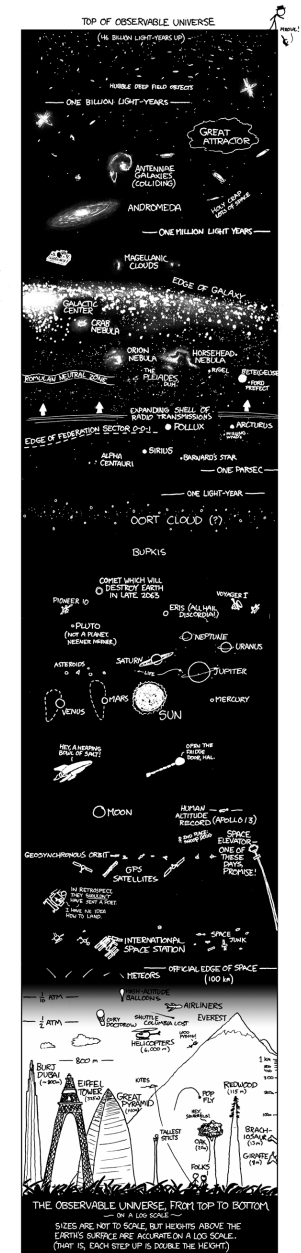 TOP OF OBSERVABLE UNIVERSE
(46 BILLION LIGHT-YEARS UP)
HUBBLE DEEP FIELD OBJECTS
ONE BILLION LIGHT-YEARS
GREAT
ATTRACTOR
ANTENNAE
GALAXIES
(COLLIDING)
HOLY CRAP
LOTS OF SPACE
ANDROMEDA
ONE MILLION LIGHT YEARS
MAGELLANIC
CLOUDS
EDGE OF GALAXY
GALACTIC
CENTER
CRAB
NEBULA
ORION
NEBULA
HORSEHEAD
NEBULA
ROMULAN NEUTRAL ZONE
THE
PLEIADES
DUH.
RIGEL
BETELGEUSE
FORD
PREFECT
EXPANDING SHELL OF
RADIO TRANSMISSIONS
EDGE OF FEDERATION SECTOR 0-0-1
POLLUX
ARCTURUS
ALPHA
CENTAURI
SIRIUS
BARNARD'S STAR
ONE PARSEC
ONE LIGHT-YEAR
OORT CLOUD (?)
BUPKIS
COMET WHICH WILL
DESTROY EARTH
IN LATE 2063
PIONEER 10
ERIS (ALL HAIL
DISCORDIA!)
VOYAGER I
PLUTO
(NOT A PLANET,
NEENER NEENER)
NEPTUNE
URANUS
SATURN
ASTEROIDS
LIFE
JUPITER
VENUS
MARS
SUN
MERCURY
HEY, A HEAPING
BOWL OF SALT!
OPEN THE
FRIDGE
DOOR, HAL.
MOON
HUMAN
ALTITUDE
RECORD (APOLLO 13)
SPACE
ELEVATOR
ONE OF
THESE
DAYS,
PROMISE!
GEOSYNCHRONOUS ORBIT
GPS
SATELLITES
IN RETROSPECT,
THEY SHOULDN'T
HAVE SENT A POET.
I HAVE NO IDEA
HOW TO LAND.
INTERNATIONAL
SPACE STATION
SPACE
JUNK
METEORS
OFFICIAL EDGE OF SPACE
(100 km)
HIGH-ALTITUDE
BALLOONS
AIRLINERS
1/2 ATM
CORY
DOCTOROW
SHUTTLE
COLUMBIA LOST
EVEREST
HELICOPTERS
(6,000 m)
800 m
1 km
BURJ
DUBAI
(~800m)
EIFFEL
TOWER
(325m)
GREAT
PYRAMID
KITES
POP
FLY
REDWOOD
(115 m)
TALLEST
STILTS
OAK
BRACH-
IOSAUR
(13m)
GIRAFFE
FOLKS
THE OBSERVABLE UNIVERSE, FROM TOP TO BOTTOM
ON A LOG SCALE
SIZES ARE NOT TO SCALE, BUT HEIGHTS ABOVE THE
EARTH'S SURFACE ARE ACCURATE ON A LOG SCALE.
(THAT IS, EACH STEP UP IS DOUBLE THE HEIGHT.)